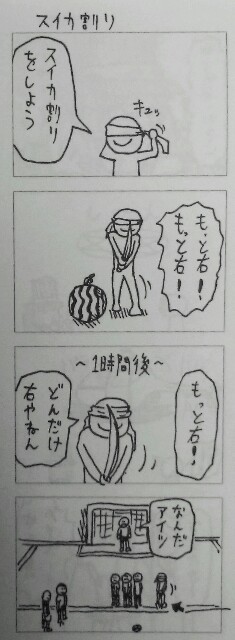 スイカ割り
スイカ割り
をしよう
キュッ
もっと右！
もっと右！
〜1時間後〜
もっと右！
どんだけ
右やねん
なんだ
アイツ